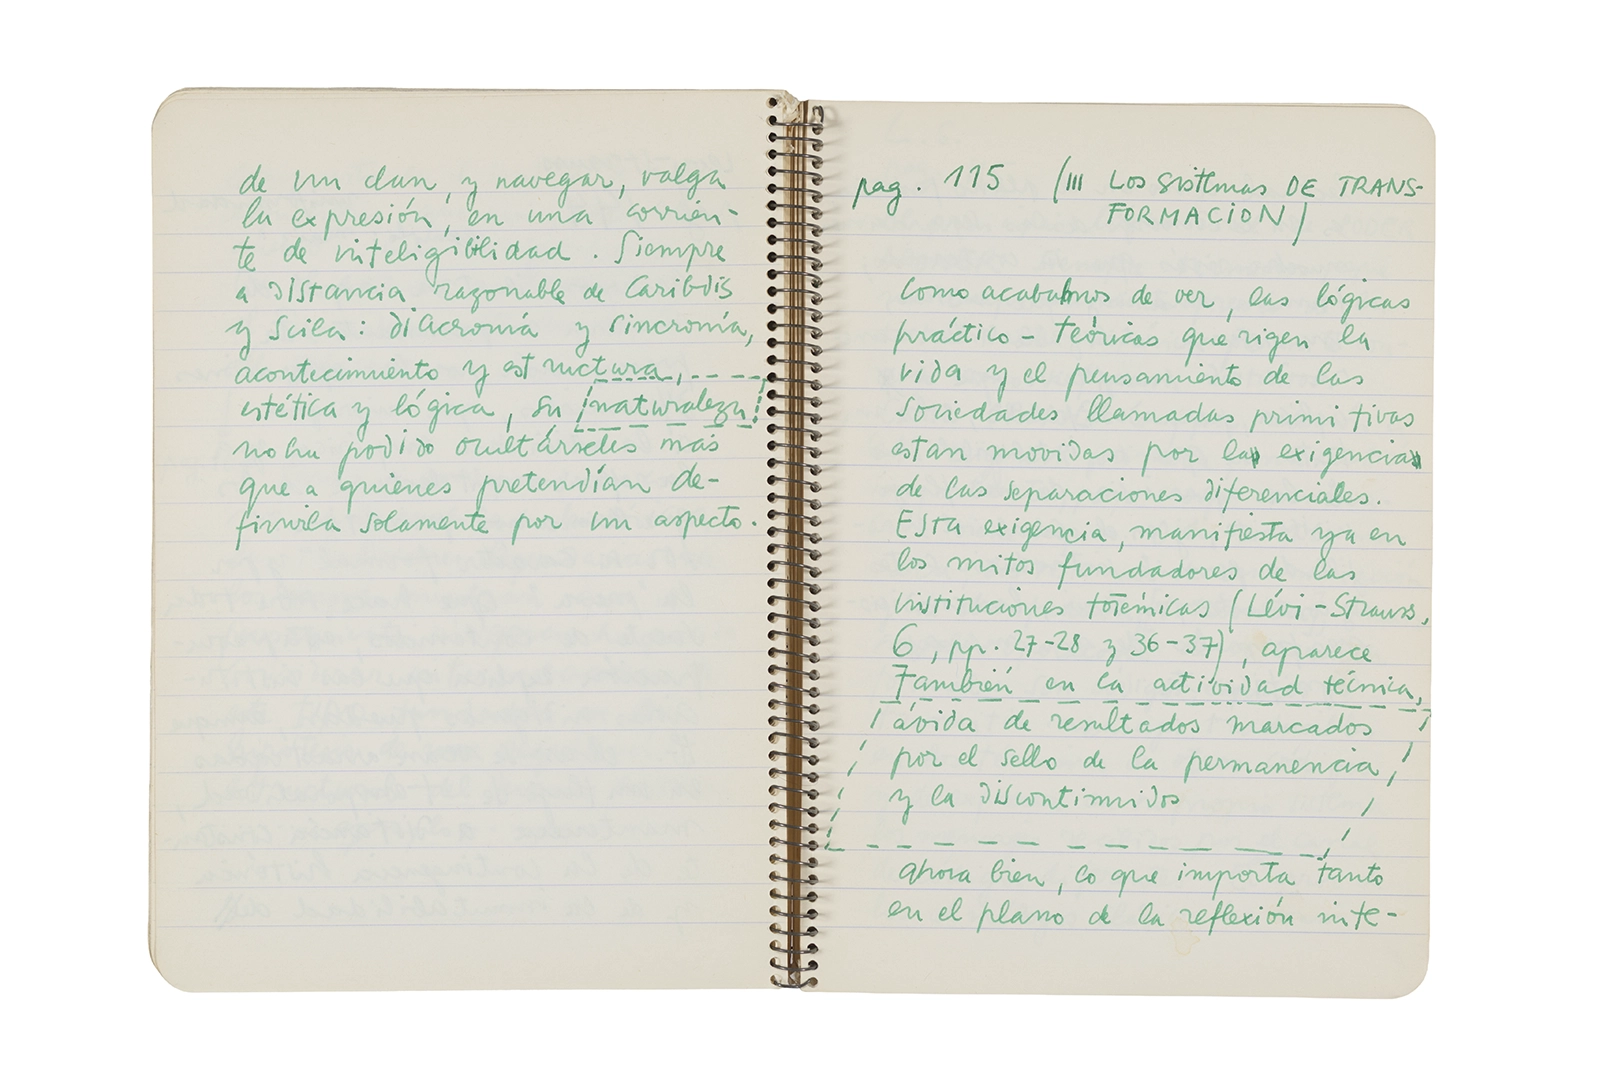 de un clan, y navegar, valga
la expresión, en una corrien-
te de inteligibilidad. Siempre
a distancia razonable de Caribdis
y Scila: diacronía y sincronía,
acontecimiento y estructura,
estética y lógica, su naturaleza
no ha podido ocultárseles más
que a quienes pretendían de-
finirla solamente por un aspecto.
pag. 115 (III LOS SISTEMAS DE TRANS-
FORMACION)
Como acabamos de ver, las lógicas
práctico-teóricas que rigen la
vida y el pensamiento de las
sociedades llamadas primitivas
estan movidas por la exigencia
de las separaciones diferenciales.
Esta exigencia, manifiesta ya en
los mitos fundadores de las
instituciones totémicas (Lévi-Strauss,
6, pp. 27-28 y 36-37), aparece
También en la actividad técnica,
ávida de resultados marcados
por el sello de la permanencia,
y la discontinuidos
ahora bien, lo que importa tanto
en el plano de la reflexión inte-